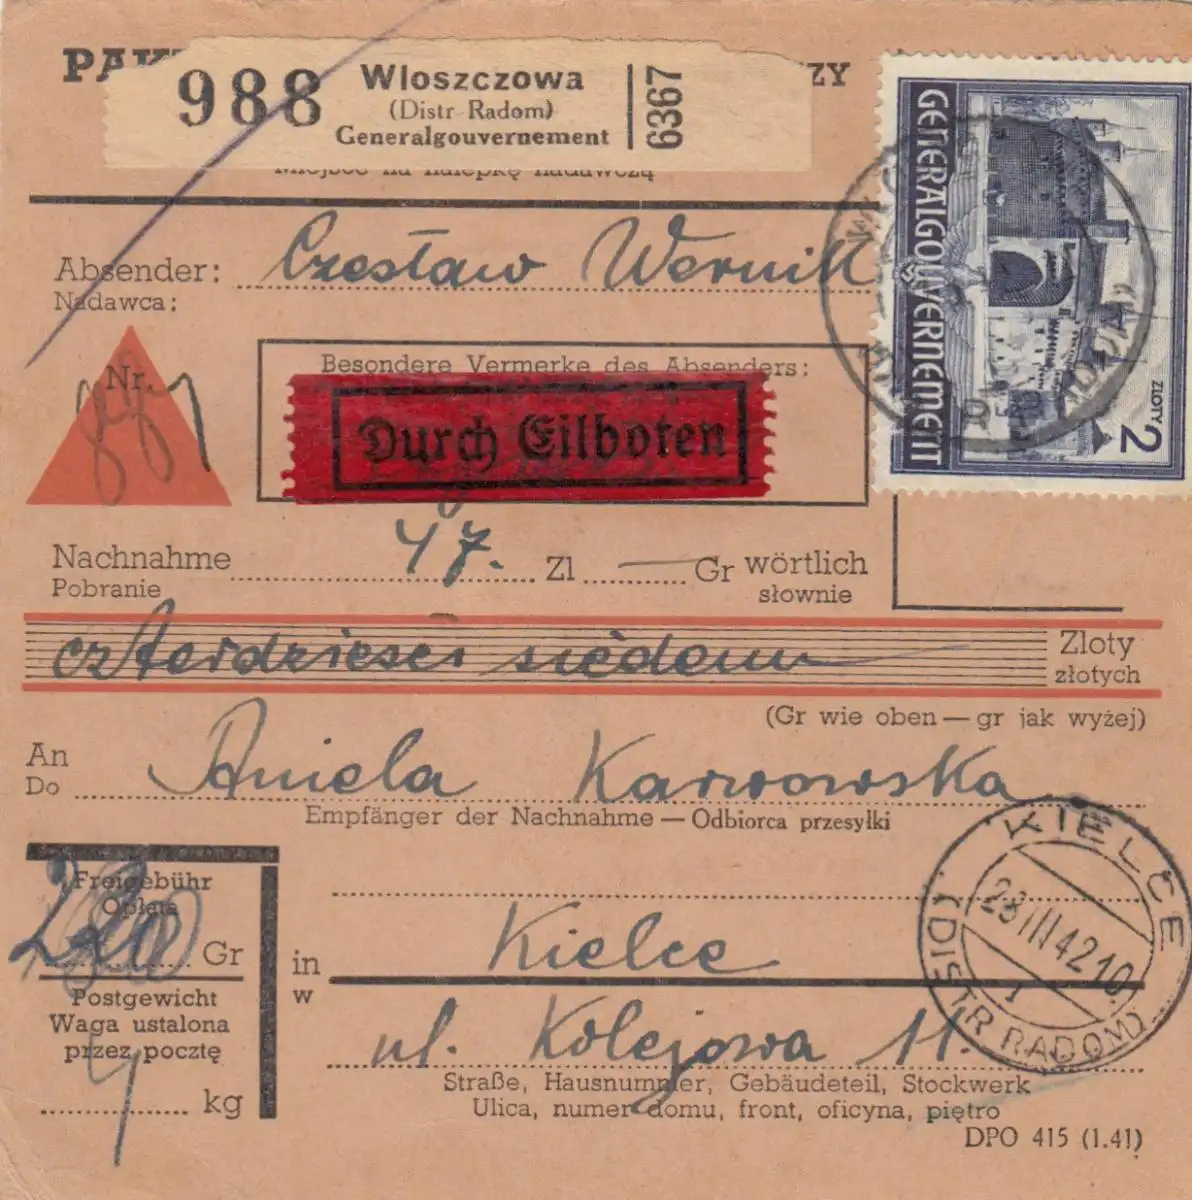 988
Wloszczowa
(Distr Radom)
Generalgouvernement
6367
ZY
Miejsce na nalepkę nadawczą
GENERALGOUVERNEMENT
2 ZLOTY
Absender: Czesław Wernik
Nadawca:
Nr.
Besondere Vermerke des Absenders:
Durch Eilboten
Nachnahme 47. Zl — Gr wörtlich
Pobranie słownie
czterdzieści siedem Zloty
złotych
(Gr wie oben — gr jak wyżej)
An
Do Aniela Karwowska
Empfänger der Nachnahme — Odbiorca przesyłki
KIELCE
23 III 42 10
(DISTR RADOM)
Freigebühr
Opłata
Gr
in Kielce
w
Postgewicht
Waga ustalona
przez pocztę
kg
ul. Kolejowa 11.
Straße, Hausnummer, Gebäudeteil, Stockwerk
Ulica, numer domu, front, oficyna, piętro
DPO 415 (1.41)